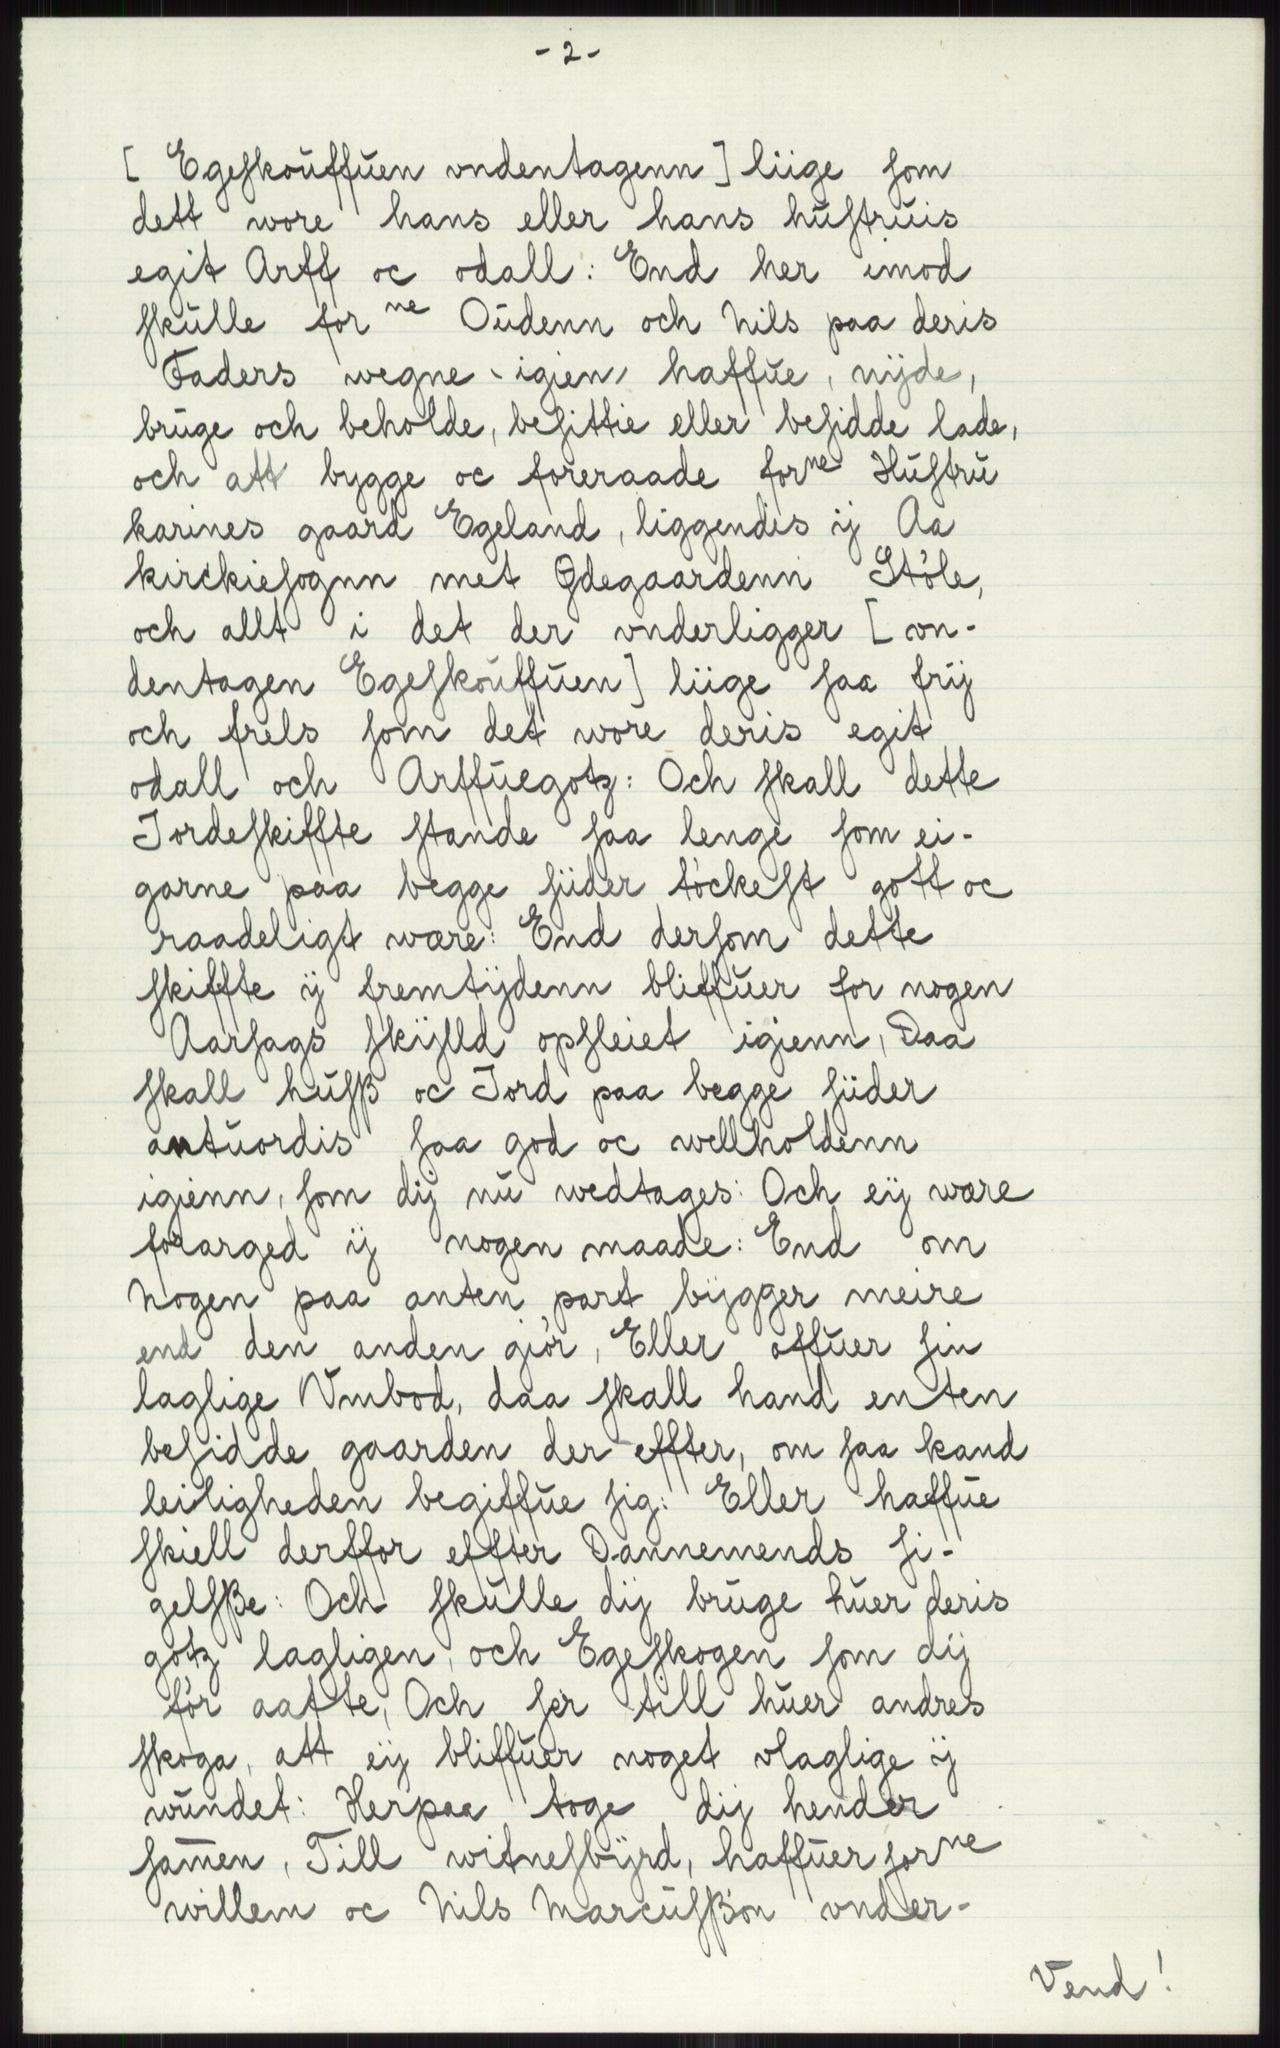 - 2 -
[ Egeſkouffuen vndentagenn ] liige ſom
dett wore hans eller hans huſtruis
egit Arff oc odall : End her imod
ſkulle for ne Oudenn och Nils paa deris
Faders wegne igien haffue, nijde,
bruge och beholde, beſittie eller beſidde lade,
och att bygge oc foreraade forne Huſtru
karines gaard Egeland, liggendis ij Aa
kirckieſognn met Ødegaardenn Støle,
och allt i det der vnderligger [ vn-
dentagen Egeſkouffuen ] liige ſaa frij
och frels ſom det wore deris egit
odall och Arffuegotz : Och ſkall dette
Jordeſkiffte ſtande ſaa lenge ſom ei-
garne paa begge ſiider tøckeſt gott oc
raadeligt wære : End derſom dette
ſkiffte ij fremtijdenn bliffuer for nogen
Aarſags ſkijlld opſleiet igienn, Daa
ſkall huſß oc Jord paa begge ſiider
antuordis ſaa god oc wellholdenn
igienn, ſom dij nu wedtages : Och eij wære
forarged ij nogen maade : End om
Nogen paa anten part bijgger meire
end den anden giør, Eller offuer ſin
laglige Vmbod, daa ſkall hand enten
beſidde gaarden der effter, om ſaa kand
leiligheden begiffue ſig : Eller haffue
ſkiell derffor effter Dannemends ſi-
gelſße : Och ſkulle dij bruge huer deris
gotz lagligen, och Egeſkogen ſom dij
før aatte, Och ſer till huer andres
ſkoga, att eij bliffuer noget vlaglige ij
wundet : Herpaa toge dij hender
ſam̄en, Till witneſbijrd, haffuer forne
willem oc Nils Marcuſßøn vnder-
Vend !